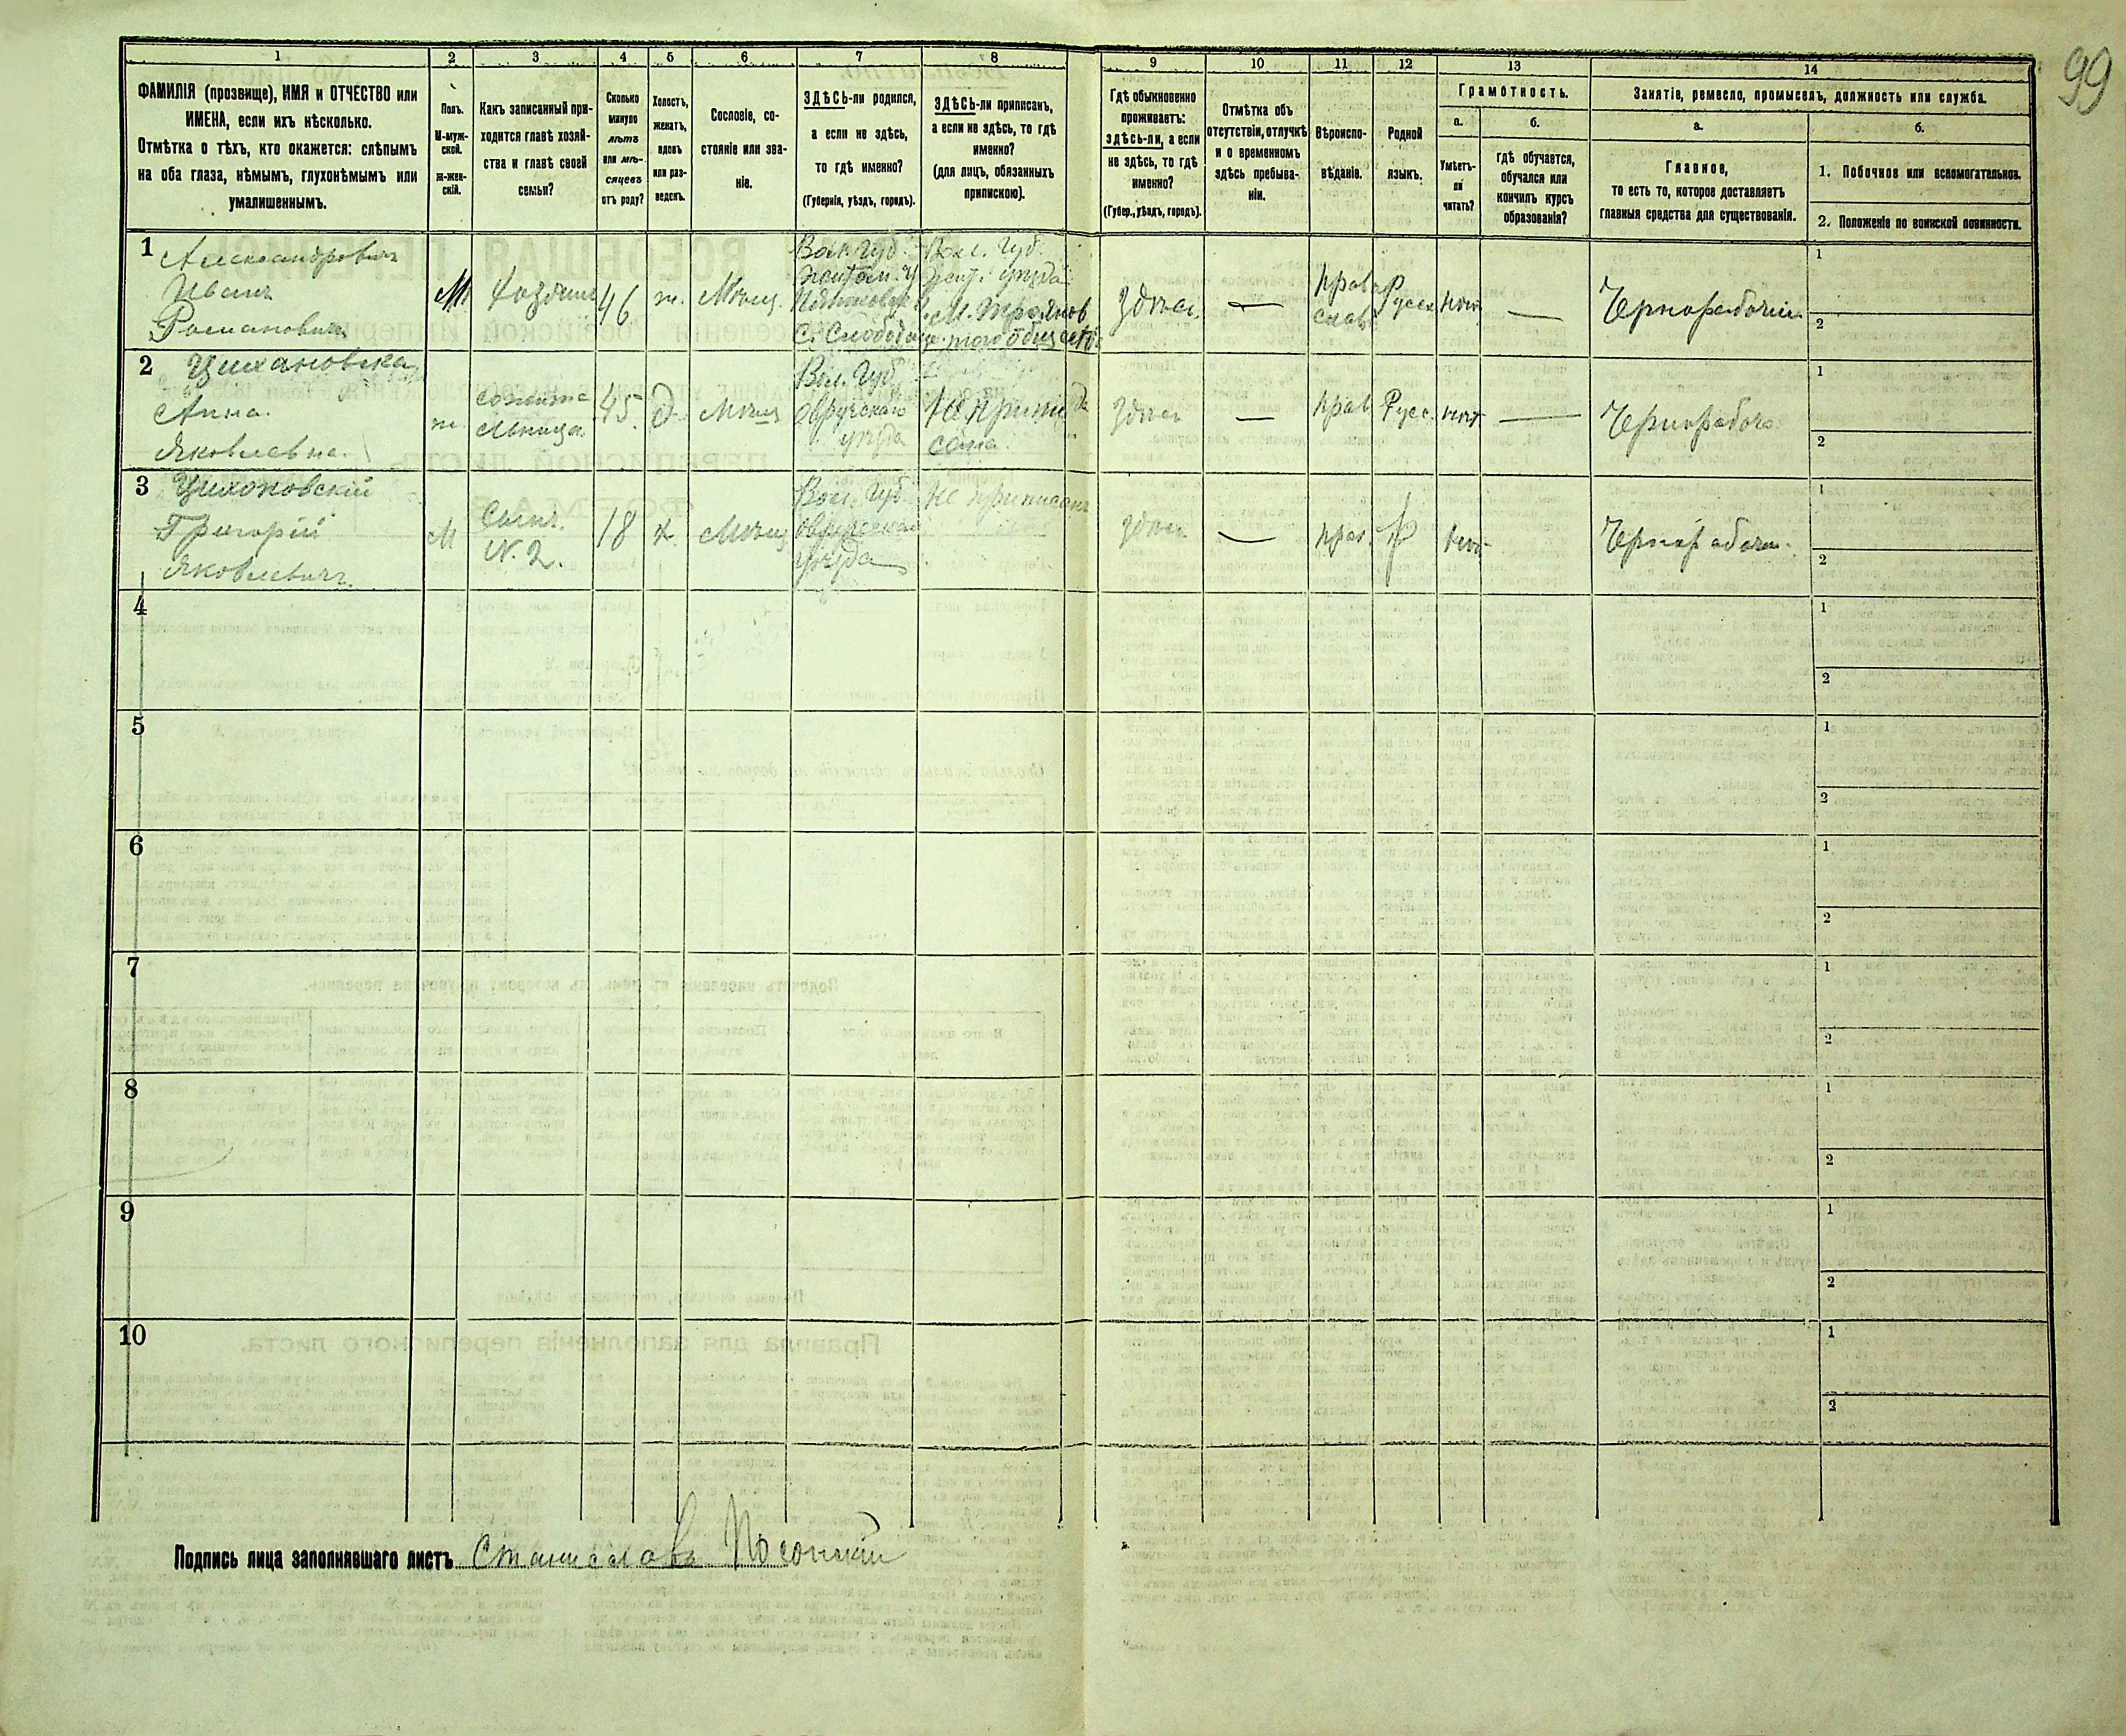 99
1 2 3 4 5 6 7 8 9 10 11 12 13 14
ФАМИЛІЯ (прозвище), ИМЯ и ОТЧЕСТВО или
ИМЕНА, если ихъ нѣсколько.
Отмѣтка о тѣхъ, кто окажется: слѣпымъ
на оба глаза, нѣмымъ, глухонѣмымъ или
умалишеннымъ.
Полъ.
М-муж-
ской.
ж-жен-
скій.
Какъ записанный при-
ходится главѣ хозяй-
ства и главѣ своей
семьи?
Сколько
минуло
лѣтъ
или мѣ-
сяцевъ
отъ роду?
Холостъ,
женатъ,
вдовъ
или раз-
веденъ.
Сословіе, со-
стояніе или зва-
ніе.
ЗДѢСЬ-ли родился,
а если не здѣсь,
то гдѣ именно?
(Губернія, уѣздъ, городъ).
ЗДѢСЬ-ли приписанъ,
а если не здѣсь, то гдѣ
именно?
(для лицъ, обязанныхъ
припискою).
Гдѣ обыкновенно
проживаетъ:
ЗДѢСЬ-ли, а если
не здѣсь, то гдѣ
именно?
(Губер., уѣздъ, городъ).
Отмѣтка объ
отсутствіи, отлучкѣ
и о временномъ
здѣсь пребыва-
ніи.
Вѣроиспо-
вѣданіе.
Родной
языкъ.
Грамотность.
а.
Умѣетъ-
ли
читать?
б.
гдѣ обучается,
обучался или
кончилъ курсъ
образованія?
Занятіе, ремесло, промыселъ, должность или служба.
а.
Главное,
то есть то, которое доставляетъ
главныя средства для существованія.
б.
1. Побочное или вспомогательное.
2. Положеніе по воинской повинности.
1 Александровичъ
Иванъ
Романовичъ
М.
46
ж.
Мѣщ.
Вол. Губ.
С. Слобода
Вол. Губ.
Жит. уѣзда
здѣсь
—
Право
слав
Русск
нѣт
—
Чернорабочій
1
2
2 Цихановска
Анна.
Яковлевна.
ж.
сожите
льница
45.
д.
Мѣщ
Вол. Губ
Овручскаго
уѣзда
Не припи
сана
здѣсь
—
Прав
Русс.
нѣт
—
Чернорабоча
1
2
3 Цихоновскій
Григорій
Яковлевичъ
М
Сынъ.
N. 2.
18
х.
Мѣщ
Вол. Губ
Овручскаго
уѣзда
Не приписанъ
здѣсь
—
прав.
Р
нѣт
Чернорабочи
1
2
4
1
2
5
1
2
6
1
2
7
1
2
8
1
2
9
1
2
10
1
2
Подпись лица заполнявшаго листъ Станиславъ